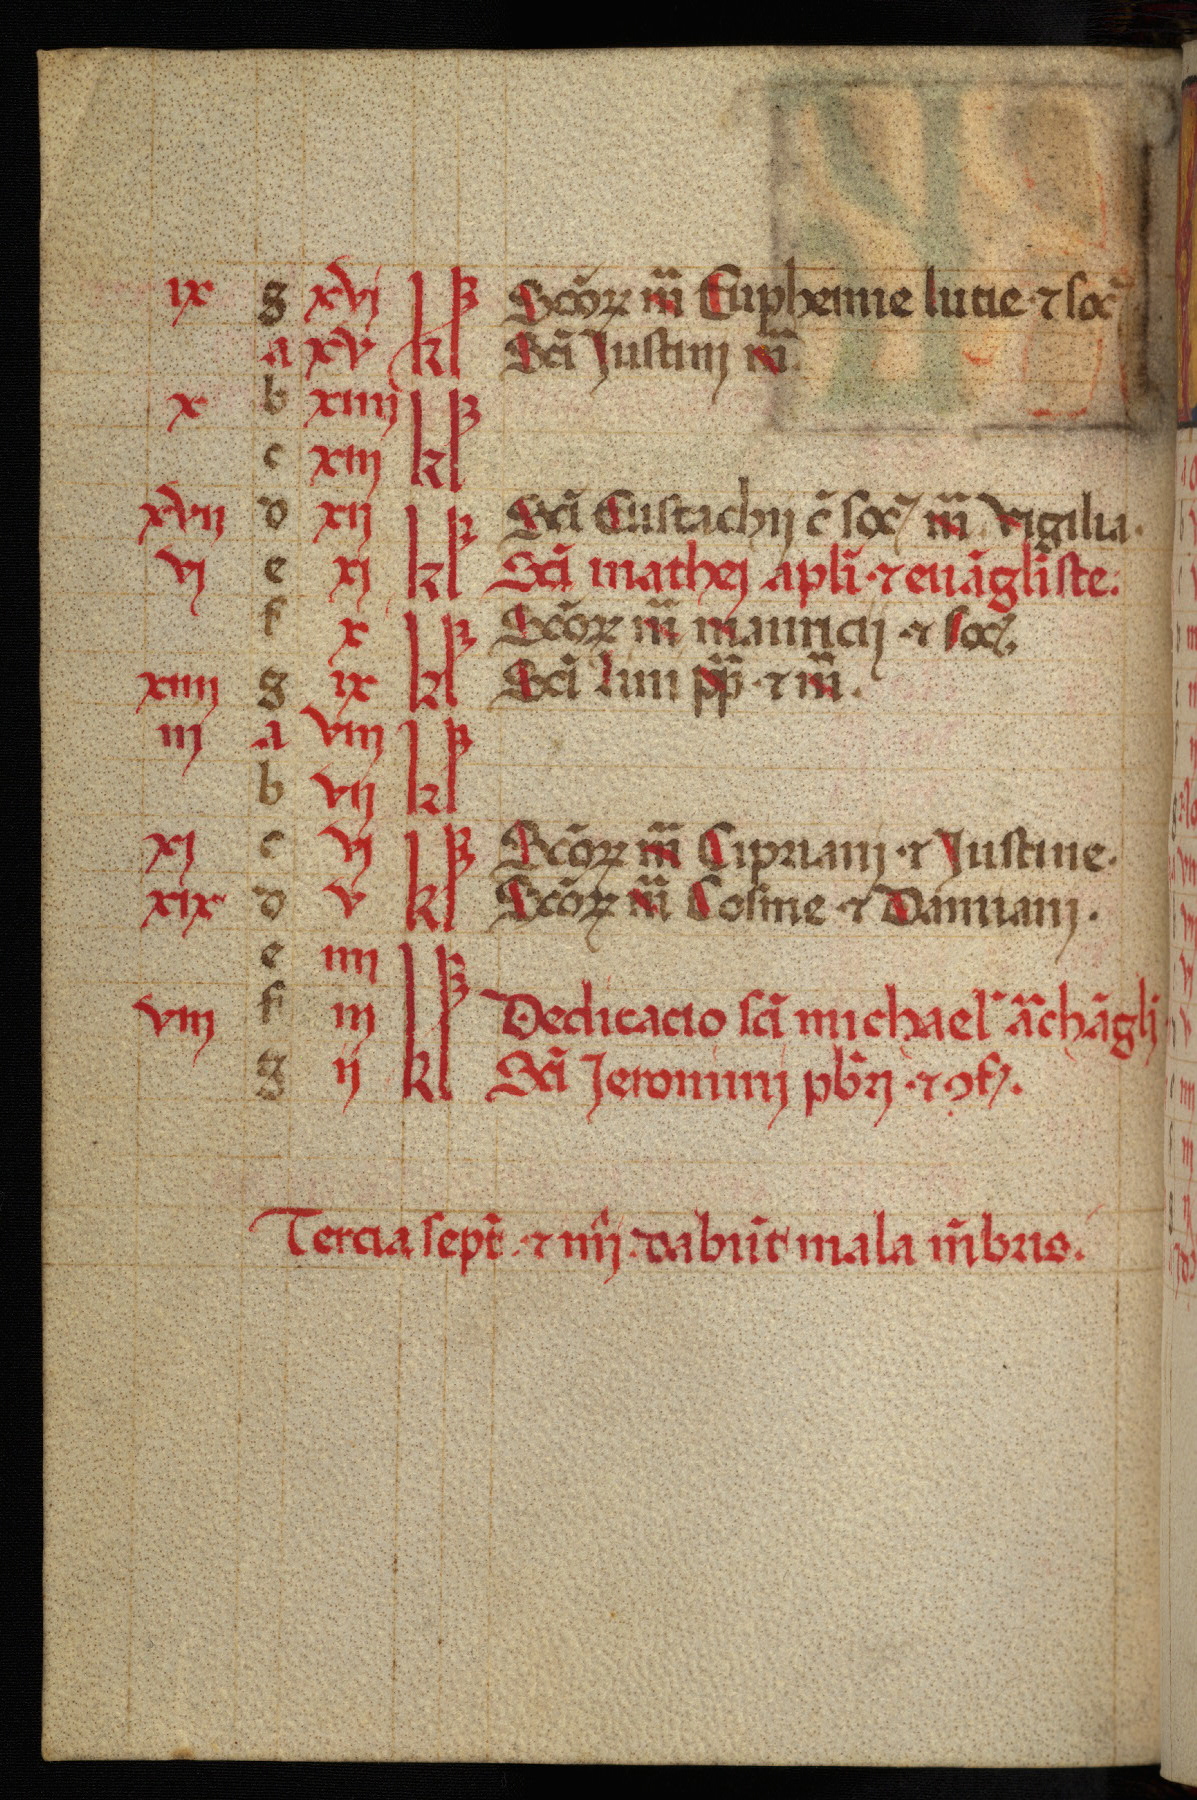 ix g xvj kl Scōꝝ m̄ Euphemie lucie ⁊ soc̄
a xv kl Scī Justinj m̄.
x b xiiij kl
c xiij kl
xvij d xij kl Scī Eustachij c̄ soc̄ m̄ Vigilia.
vj e xj kl Scī mathej apl̄i ⁊ euāgl̄iste.
f x kl Scōꝝ m̄ mauricij ⁊ soc̄.
xiiij g ix kl Scī linj pp̄ ⁊ m̄.
iij a viij kl
b vij kl
xj c vj kl Scōꝝ m̄ Ciprianj ⁊ Justine.
xix d v kl Scōꝝ m̄ Cosme ⁊ Damianj.
e iiij kl
viij f iij kl Dedicacio scī michael̄ ārchāgl̄i
g ij kl Scī Jeronimj pb̄rj ⁊ ꝯf̄.
Tercia sept̄. ⁊ xͫ. dabūt mala m̄bris.